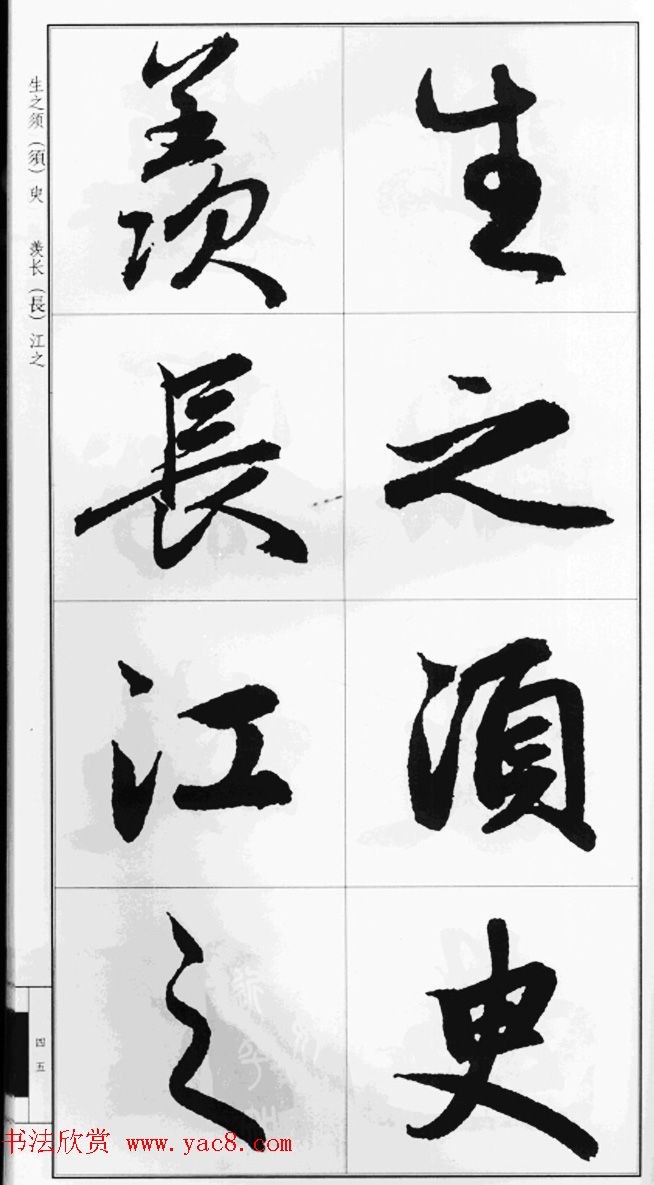 生之須臾
羨長江之
生之须（須）臾　羡长（長）江之
四五
书法欣赏 www.yac8.com